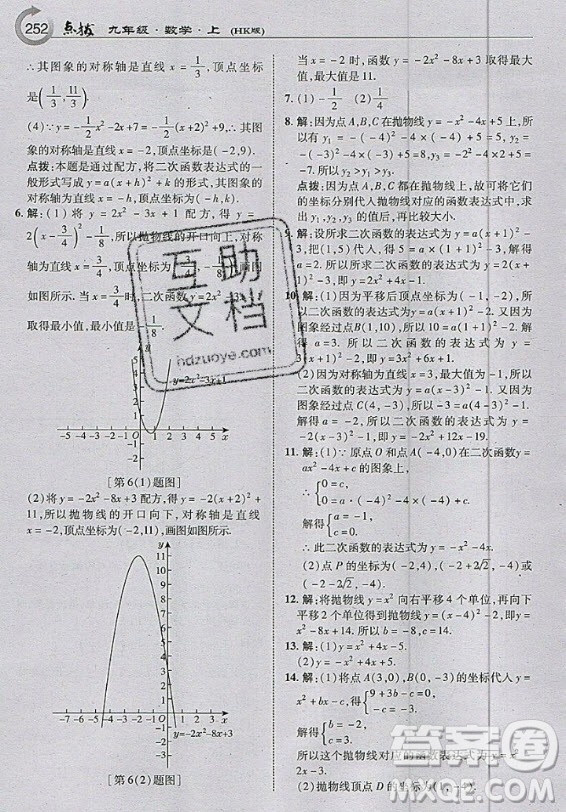 252 点拨 九年级·数学·上 (HK版)
∴其图象的对称轴是直线 x=1/3, 顶点坐标
是(1/3, 11/3).
(4)∵y=-1/2x²-2x+7=-1/2(x+2)²+9,∴其图
象的对称轴是直线 x=-2,顶点坐标是(-2,9).
点拨:本题是通过配方,将二次函数表达式的一
般形式写成 y=a(x+h)²+k 的形式,其图象的
对称轴为直线 x=-h,顶点坐标为(-h,k).
6. 解:(1) 将 y=2x²-3x+1 配方,得 y=
2(x-3/4)²-1/8,所以抛物线的开口向上,对称
轴为直线 x=3/4,顶点坐标为(3/4,-1/8).画图
如图所示.当 x=3/4 时,二次函数 y=2x²
取得最小值,最小值是-1/8.
互助
文档
hdzuoye.com
y=2x²-3x+1
-5 -4 -3 -2 -1 O 1 2 3 4 5 x
[第6(1)题图]
(2)将 y=-2x²-8x+3 配方,得 y=-2(x+2)²+
11,所以抛物线的开口向下,对称轴是直线
x=-2,顶点坐标为(-2,11),画图如图所示.
-7 -6 -5 -4 -3 -2 -1 O 1 2 3 x
y=-2x²-8x+3
[第6(2)题图]
当 x=-2 时,二次函数 y=-2x²-8x+3 取得
最大值,最大值是 11.
7. (1) -1/4 (2) 1/4
8. 解:因为点 A,B,C 在抛物线 y=-x²-4x+5 上,所
以有 y₁=-(-4)²-4×(-4)+5=5,y₂=
-(-2)²-4×(-2)+5=9,y₃=
点拨:因为各点都在抛物线上,故可将它们
的坐标分别代入抛物线对应的函数表达式中,求
出 y₁,y₂,y₃ 的值后,再比较大小.
9. 解:设所求二次函数的表达式为 y=a(x-2)²
-3,把(1,5)代入,得 5=a(1-2)²-3,解得
a=8. 所以所求二次函数的表达式为 y=
10. 解:(1)因为平移后顶点坐标为(-1,-2),所
图象经过点 B(1,10),所以 10=a(1+1)²-2.
解得 a=3. 所以二次函数的表达式为 y=
3(x+1)²-2=3x²+6x+1.
(2)因为对称轴为直线 x=3,最大值为-1,所
以二次函数的表达式为 y=a(x-3)²-1.又因为
图象经过点 C(4,-3),所以-3=a(4-3)²-1.
解得 a=-2. 所以二次函数的表达式为
y=-2x²+12x-19.
11. 解:(1)∵ 原点 O 和点 A(-4,0)在二次函数 y=
ax²-4x+c 的图象上,
∴{c=0,
解得{a=-1,
c=0.
∴此二次函数的表达式为 y=-x²-4x.
(2) 点 P 的坐标为(-2,4),(-2+2√2,-4)
或(-2-2√2,-4).
12. 解:将抛物线 y=x² 向右平移 4 个单位,再向下
平移 2 个单位得到抛物线 y=(x-4)²-2,即 y=
x²-8x+14. 所以 b=-8,c=14.
13. 解:(1) y=x²-4x-6.
14. 解:(1) 将点 A(3,0),
{9+3b+c=0,
c=-3.
解得{b=-2,
c=-3.
所以这个抛物线对应的函数表达式为 y=
(2)抛物线顶点 D 的坐标为(1,-4).
答案圈
MXQE.COM